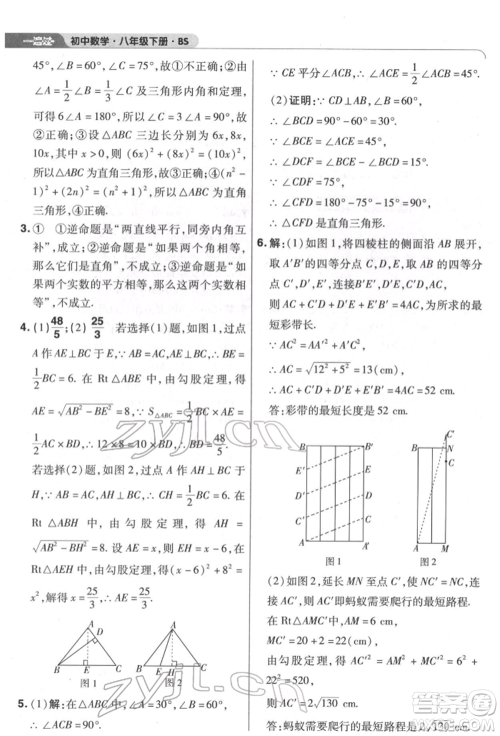 一遍过 初中数学·八年级下册·BS
45°,∠B=60°,∠C=75°,故①不正确;②由∠A
=1/2∠B=1/3∠C及三角形内角和定理,可求得
6∠A=180°,所以∠C=3∠A=90°,故②正确;
③由题意,可设△ABC的三边长分别为6x,8x,
10x,其中x>0,则(6x)²+(8x)²=(10x)²,所以
此△ABC为直角三角形,故③正确;④因为
(n²-1)²+(2n)²=(n²+1)²,所以△ABC是直角
三角形,故④正确.
3.① ①逆命题是“两直线平行,同旁内角互
补”,成立;②逆命题是“如果两个角相等,
那么它们是直角”,不成立;③逆命题是“如果
两个实数的平方相等,那么这两个实数相
等”,不成立.
4.(1)48/5;(2)25/3 若选择(1)题,如图1,过点
A作AE⊥BC于点E.∵AB=AC,∴BE=
1/2BC=6.在Rt△ABE中,由勾股定理,得
AE=√(AB²-BE²)=8.∵S△ABC=1/2AE×BC=
1/2AC×BD,∴12×8=10×BD,∴BD=48/5.
若选择(2)题,如图2,过点A作AH⊥BC于
点H.∵AB=AC,∴BH=1/2BC=6.在
Rt△ABH中,由勾股定理,得AH=
√(AB²-BH²)=8.设AE=BE=x,则EH=x-6.
在Rt△AEH中,由勾股定理,得8²+(x-6)²=
x²,解得x=25/3,∴AE=25/3.
A
D
B E C
图1
A
D
B H E C
图2
5.(1)解:∵∠A=30°,∠B=60°,
∴∠ACB=90°.
∵CE平分∠ACB,∴∠ACE=∠BCE=45°.
(2)证明:∵CD⊥AB,∠B=60°,
∴∠BCD=90°-60°=30°.
∵∠BCE=∠ACE=45°,
∴∠DCF=∠BCE-∠BCD=15°.
∵∠CDF=75°,
∴∠CFD=180°-75°-15°=90°,
∴△CFD是直角三角形.
6.解:(1)如图1,将四棱柱的侧面沿AB展开,
取A'B'的四等分点C',D',E',取AB的四等
分点C,D,E,连接B'E',D'E,C'D,AC',
则AC+C'D+D'E+E'B=4AC'为所求的最
短彩带长.
∵AC'²=AA'²+A'C'²,
∴AC'=√(12²+5²)=13(cm),
∴AC'+C'D+D'E+E'B=4AC'=52 cm.
答:彩带的最短长度是52 cm.
B B'
E E'
D D'
C C'
A A'
图1
C'
N
A M
图2
(2)如图2,延长MN至点C',使NC'=NC,连
接AC',AC'即为蚂蚁需要爬行的最短路程.
在Rt△AMC'中,AM=6(cm),
MC'=20+2=22(cm),
由勾股定理,得AC'²=AM²+MC'²=6²+
22²=520,
∴AC'=2√130 cm.
答:蚂蚁需要爬行的最短路程是2√130 cm.
zyjl.cn
zyjl.cn